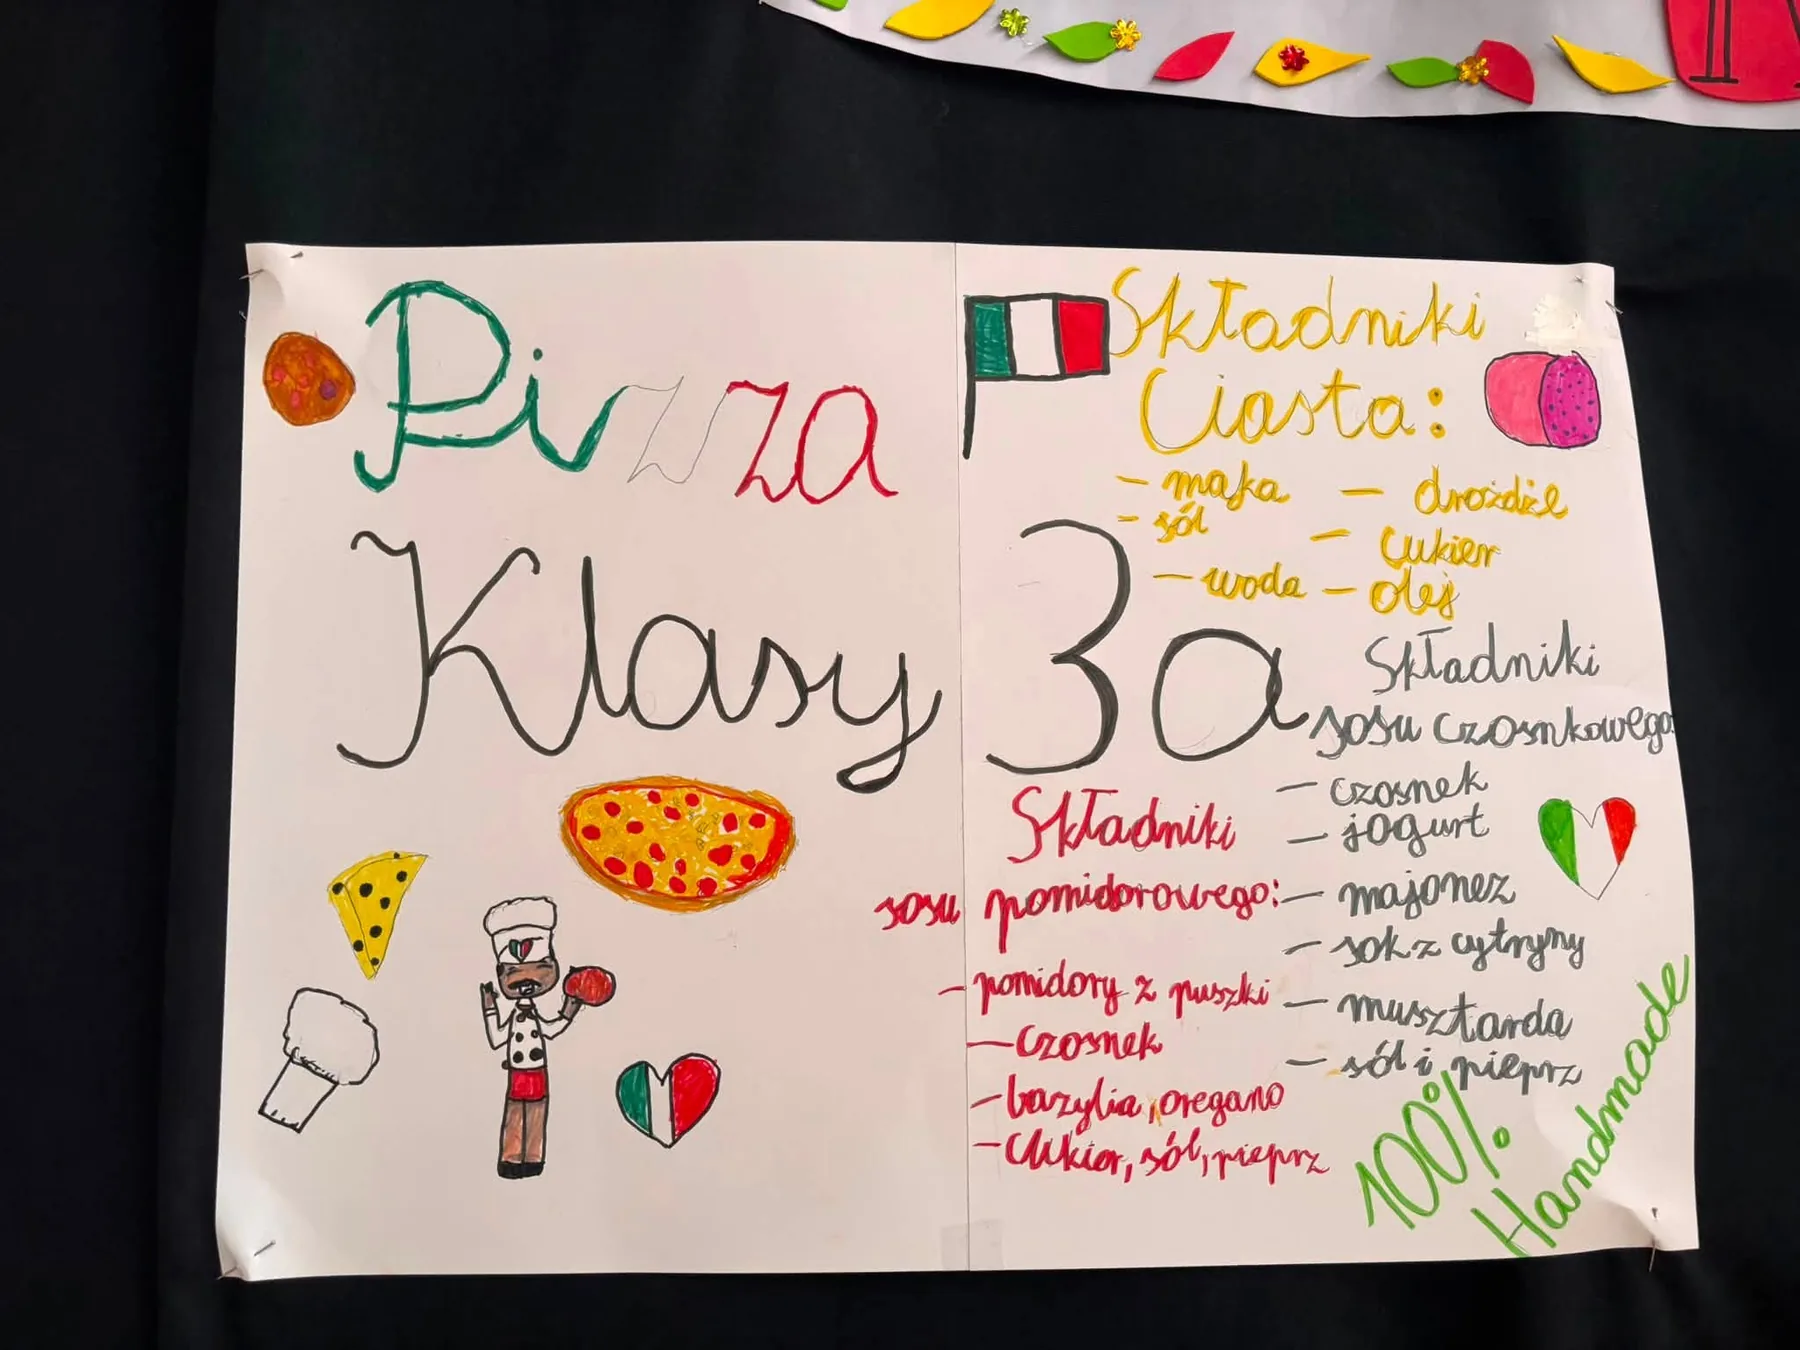 Pizza
Klasy 3a
Składniki
Ciasta:
- mąka - drożdże
- sól - cukier
- woda - olej
Składniki
sosu czosnkowego:
- czosnek
- jogurt
- majonez
- sok z cytryny
- musztarda
- sól i pieprz
Składniki
sosu pomidorowego:
- pomidory z puszki
- czosnek
- bazylia, oregano
- cukier, sól, pieprz
100%
Handmade